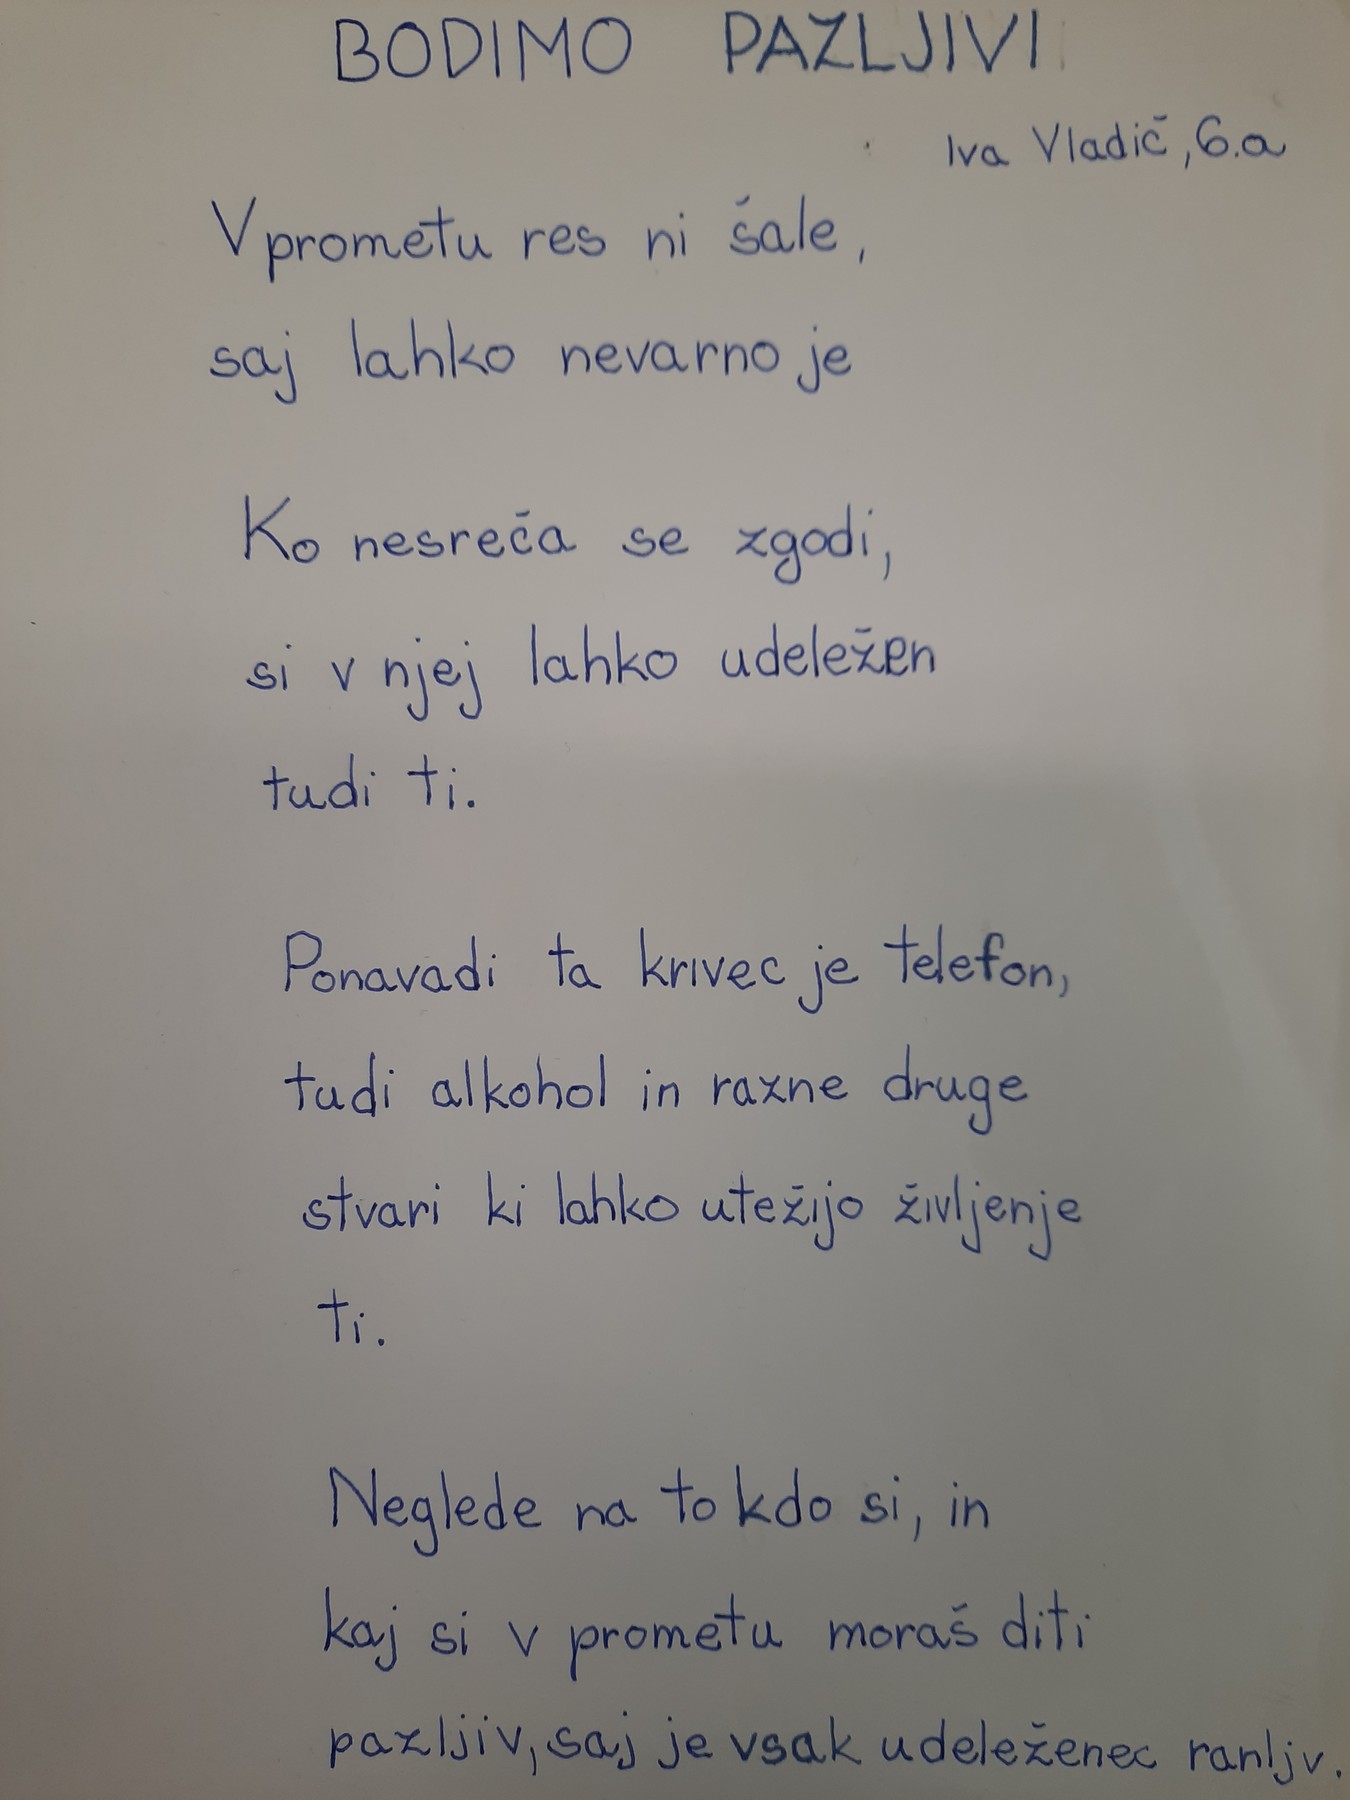 BODIMO PAZLJIVI
Iva Vladič, 6.a
V prometu res ni šale,
saj lahko nevarno je
Ko nesreča se zgodi,
si v njej lahko udeležen
tudi ti.
Ponavadi ta krivec je telefon,
tudi alkohol in razne druge
stvari ki lahko utežijo življenje
ti.
Neglede na to kdo si, in
kaj si v prometu moraš diti
pazljiv, saj je vsak udeleženec ranljv.